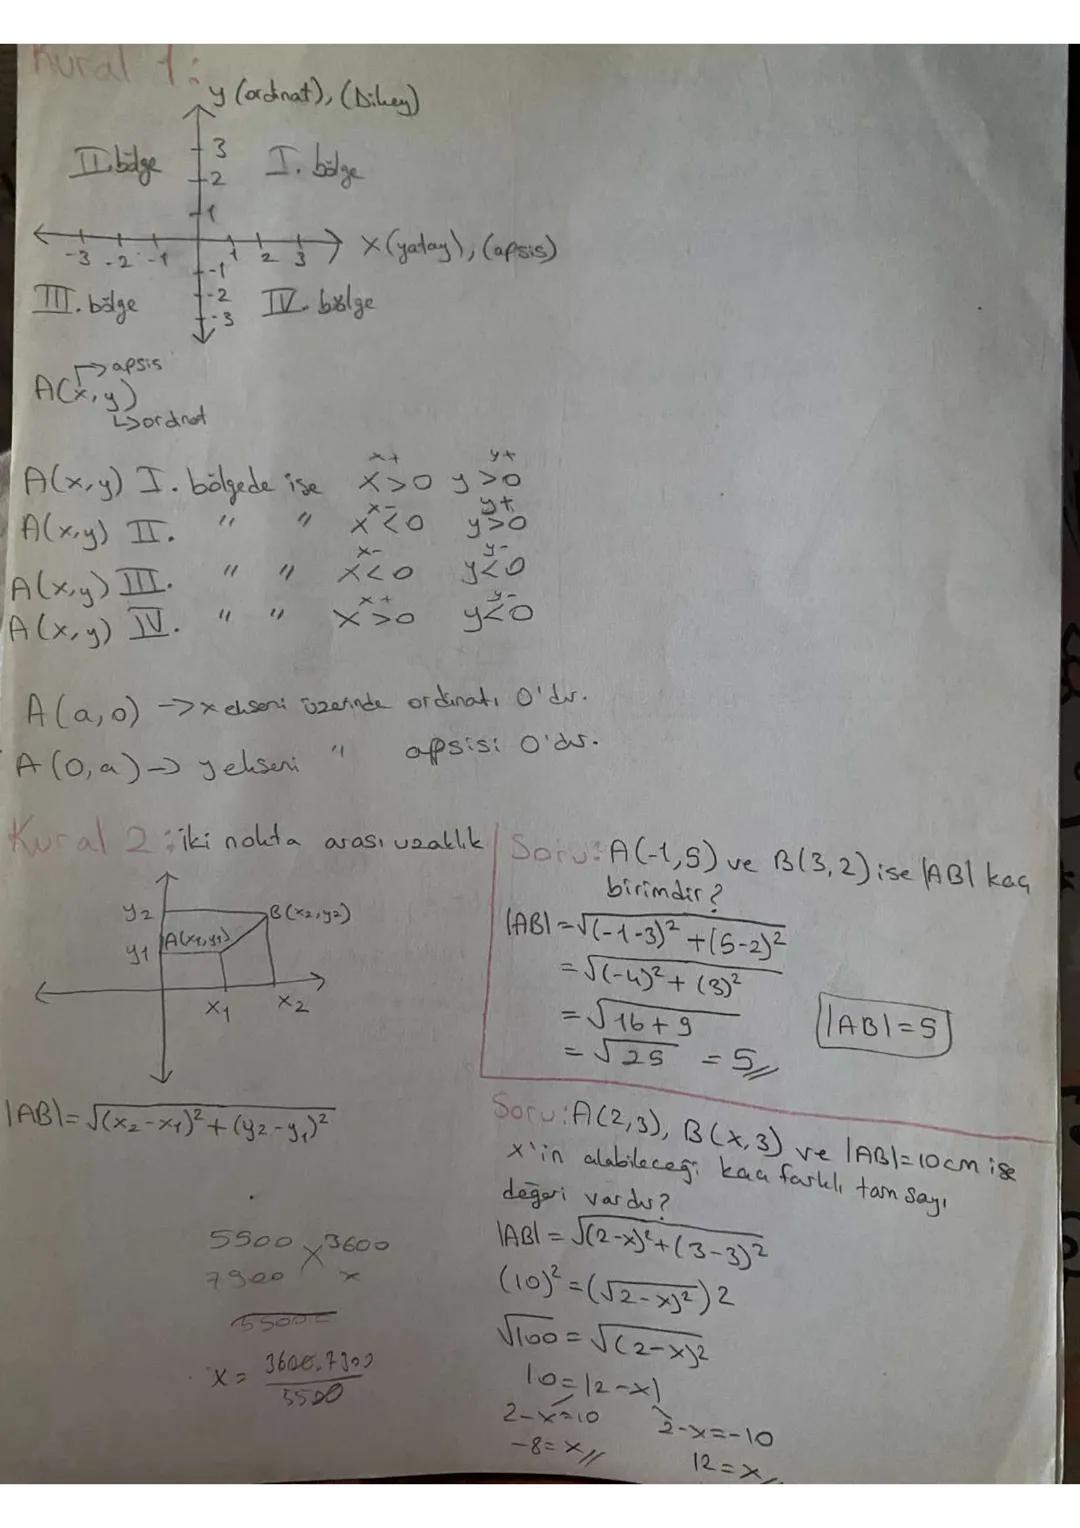 Kural 1:
y (ordinat), (Dikey)
II. bölge
I. bölge
3
2
1
-3 -2 -1
1 2 3
x (yatay), (apsis)
-1
-2
-3
III. bölge
IV. bölge
apsis
A(x,y)
ordinat
x+ y+
A(x,y) I. bölgede ise x>0 y>0
x- y+
A(x,y) II. " " x<0 y>0
x- y-
A(x,y) III. " " x<0 y<0
x+ y-
A(x,y) IV. " " x>0 y<0
A(a,0) → x ekseni üzerinde ordinatı 0'dır.
A(0,a) → y ekseni " apsisi 0'dır.
Kural 2: iki nokta arası uzaklık
y2
B(x2,y2)
y1
A(x1,y1)
x1
x2
|AB| = √(x2-x1)²+(y2-y1)²
5500 3600
7900 x
x =
5500
Soru: A(-1,5) ve B(3,2) ise |AB| kaç
birimdir?
|AB| = √(-1-3)² + (5-2)²
= √(-4)² + (3)²
= √16+9
= √25 = 5
|AB| = 5
Soru: A(2,3), B(x,3) ve |AB|=10cm ise
x'in alabileceği kaç farklı tam sayı
değeri vardır?
|AB| = √(2-x)²+(3-3)²
(10)² = (√2-x)²)2
√100 = √(2-x)²
10 = |2-x|
2-x=10
2-x=-10
-8=x
12=x